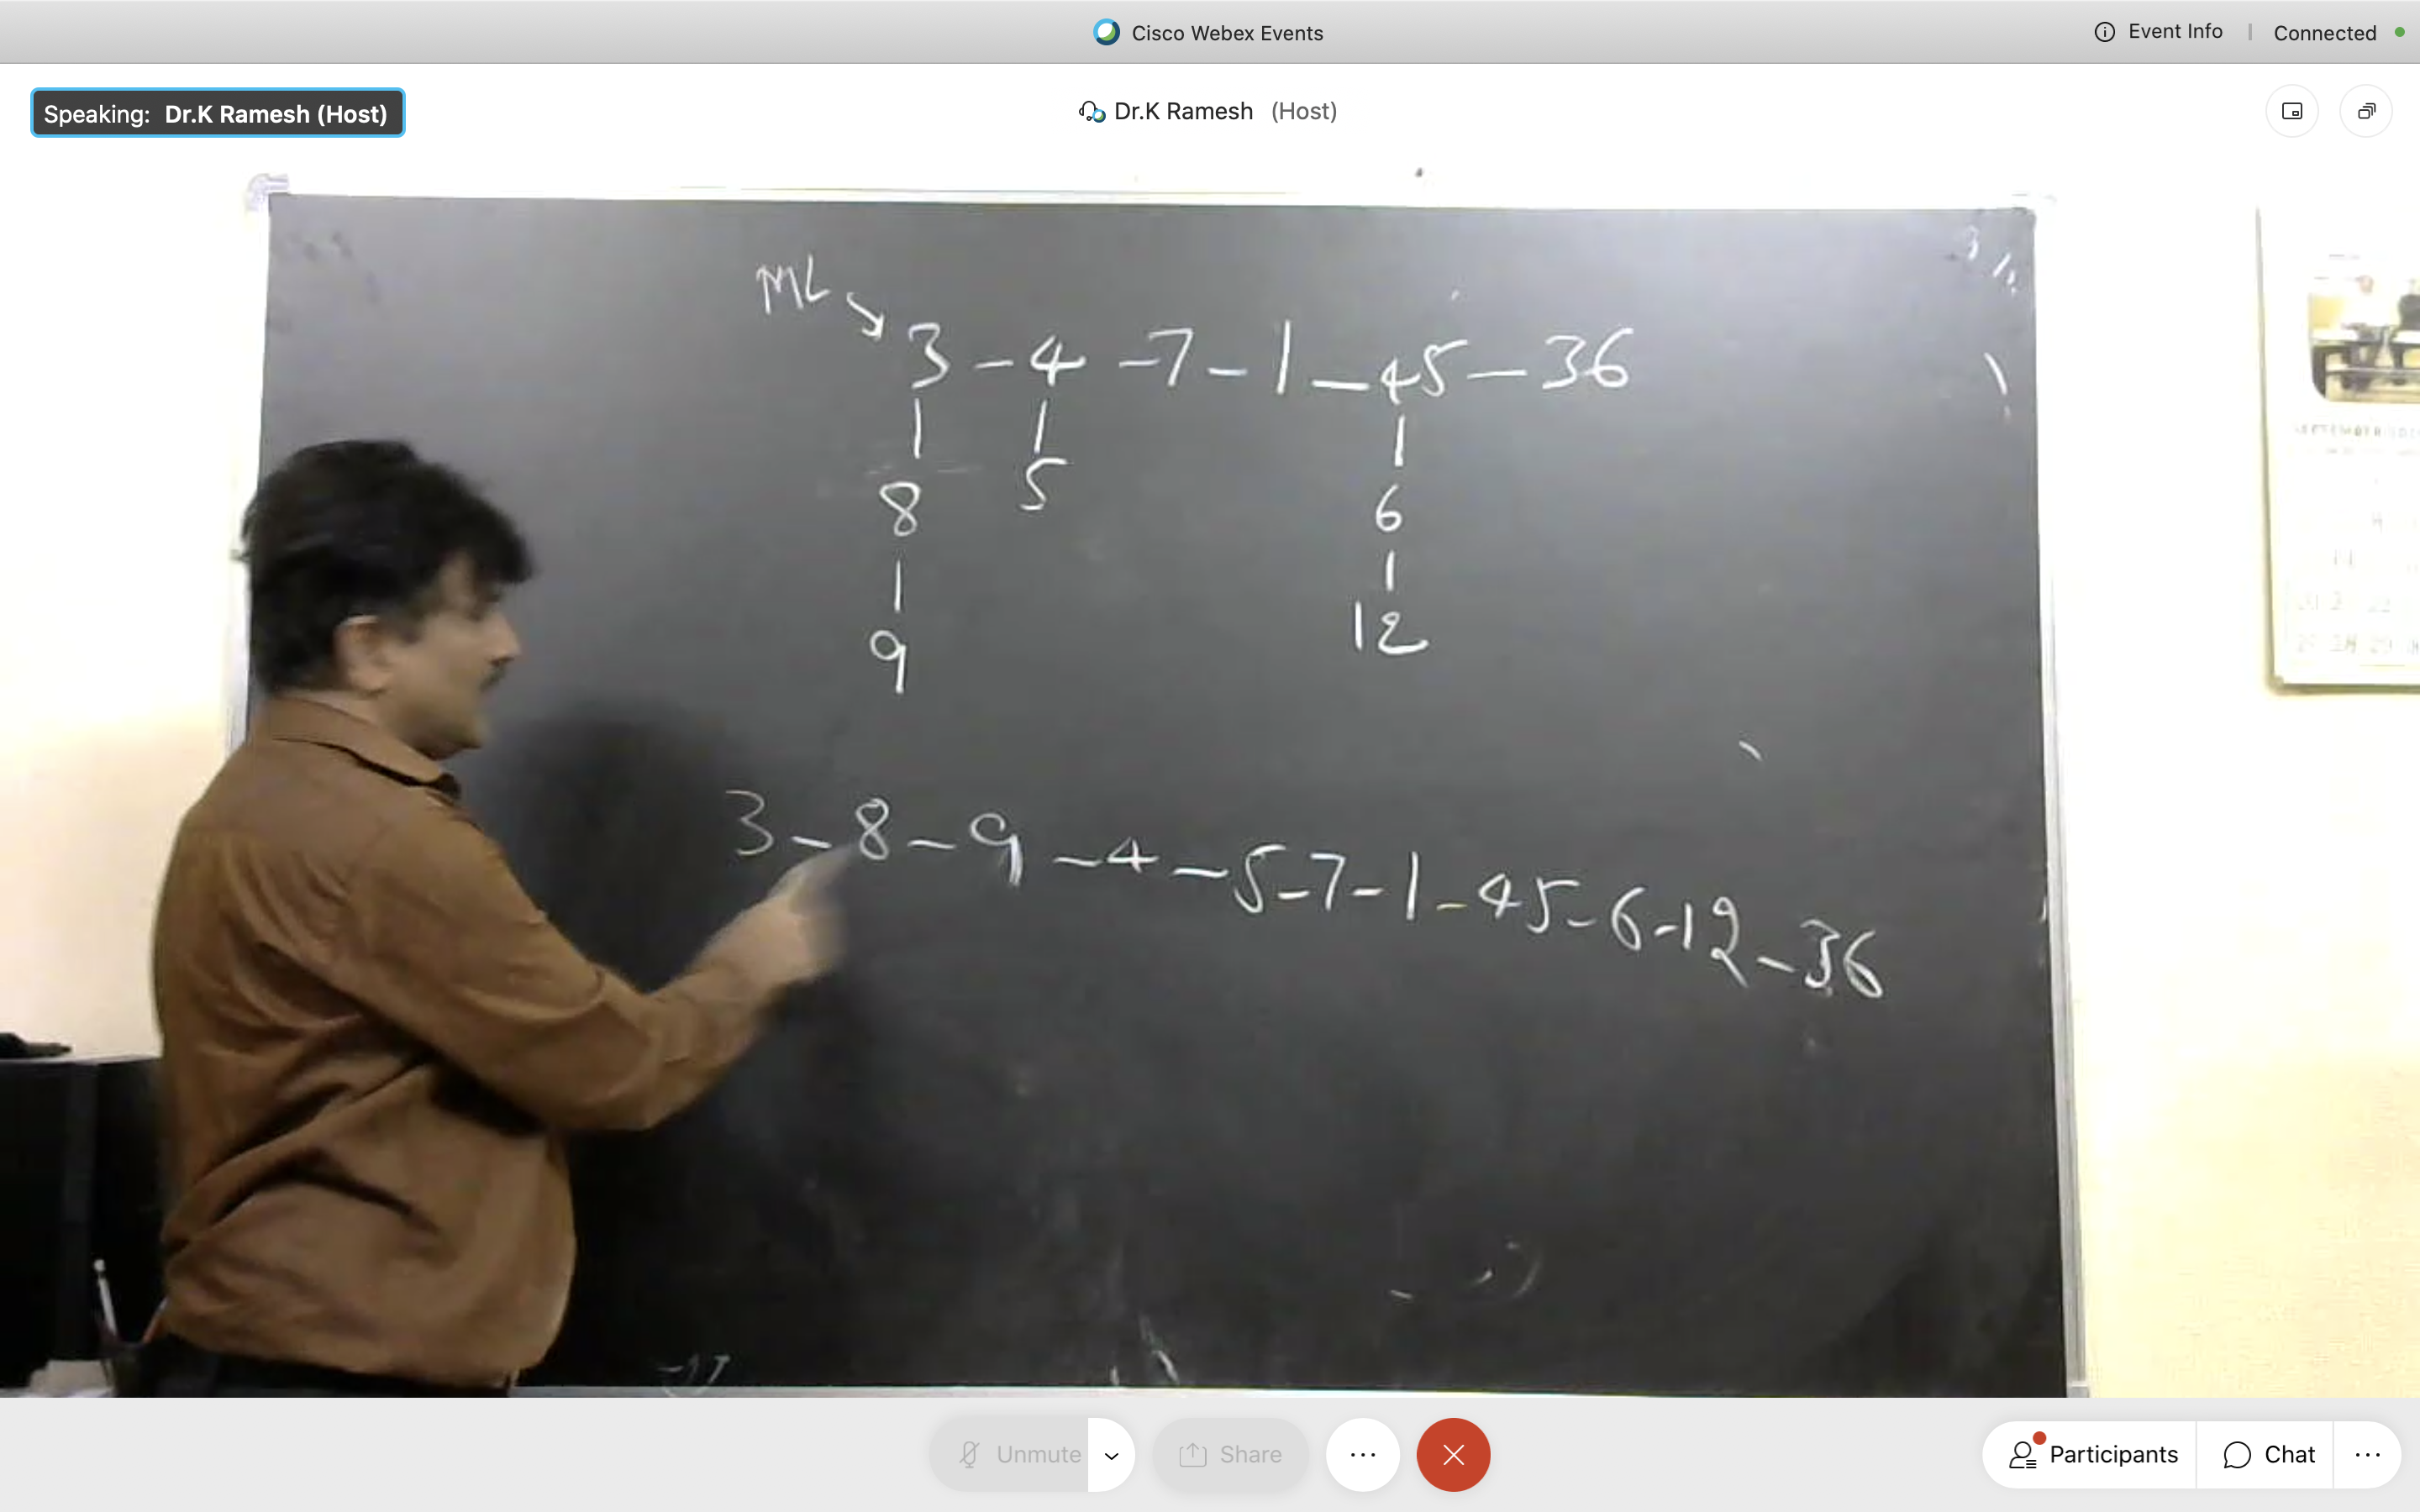 Cisco Webex Events
Event Info | Connected
Speaking: Dr.K Ramesh (Host)
Dr.K Ramesh (Host)
ML
3 - 4 - 7 - 1 - 45 - 36
8 5 6
9 12
3 - 8 - 9 - 4 - 5 - 7 - 1 - 45 - 6 - 12 - 36
Unmute
Share
Participants
Chat